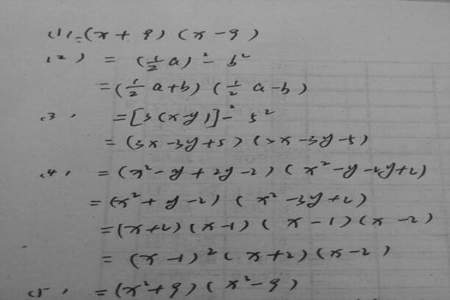 (1) = (x + 9) (x - 9)
(2) = (½a)² - b²
= (½a + b) (½a - b)
(3) = [3(x-y)]² - 5²
= (3x - 3y + 5) (3x - 3y - 5)
(4) = (x² - y + 2y - 2) (x² - y - 2y + 2)
= (x² + y - 2) (x² - 3y + 2)
= (x + 2) (x - 1) (x - 1) (x - 2)
= (x - 1)² (x + 2) (x - 2)
(5) = (x² + 9) (x² - 9)